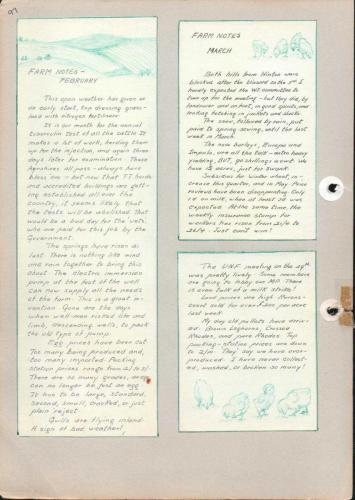 97
FARM NOTES -
FEBRUARY
This open weather has given us
an early start, top dressing grass-
land with nitrogen fertilizer.
It is our month for the annual
tuberculin test of all the cattle. It
makes a lot of work, herding them
up for the injection, and again three
days later for examination. These
Agnathas all pass - always have
bless em - but now that T.T. herds
and accredited buildings are gett-
ing established all over the
country, it seems likely that
the tests will be abolished. That
would be a bad day for the vets.
who are paid for this job by the
Government.
The springs have risen at
last. There is nothing like wind
and rain together to bring this
about. The electric immersion
pump at the foot of the well
can now supply all the needs
of the farm. This is a great in-
vention. Gone are the days
when well-men risked life and
limb, descending wells, to pack
the old type of pump.
Egg prices have been cut
Too many being produced and,
too many imported. Packing
Station prices range from 2/- to 3/-.
There are so many grades, an egg
can no longer be just an egg
It has to be large, standard,
second, small, cracked, or just
plain reject
Gulls are flying inland.
A sign of bad weather!
FARM NOTES
MARCH
Both hills from Hinton were
blocked after the blizzard on the 3rd. I
hardly expected the W.I. committee to
turn up for the meeting - but they did, by
landrover and on foot, in good spirits, and
looking fetching in jackets and slacks.
The snow, followed by rain, put
paid to spring sowing, until the last
week in March.
The new barleys, Europa and
Impala, are all the talk - extra heavy
yielding, BUT, 90 shillings a cwt. We
have 12 acres, just for swank.
Subsidies for winter wheat, in-
crease this quarter, and in May. Price
reviews have been disappointing. Only
1d on milk, when at least 3d was
expected. At the same time, the
weekly insurance stamp for
workers has risen from
Just can't win!
The UNF meeting on the 29th
was pretty lively. Some members
are going to lobby our MP. There
is even talk of a milk strike!
Land prices are high.
court sold for over £200 an acre
last week
My day old pullets have arriv-
ed. Brown Leghorns, Cuckoo
Rhodes, and pure Rhodes. Top
packing-station prices are down
to 2/10. They say we have over-
produced. I have never collect-
ed, washed, or broken so many!